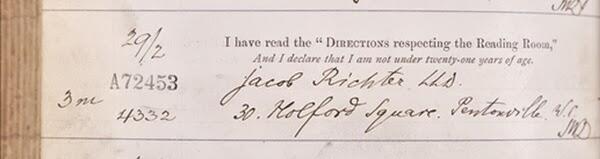 29/2
I have read the “DIRECTIONS respecting the Reading Room,”
And I declare that I am not under twenty-one years of age.
A72453
Jacob Richter LL.D.
3m
4332
30. Holford Square. Pentonville W.C